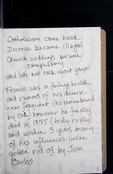 Catholicism came back.
Divorce became illegal
Church weddings became
compulsory
and lets not talk about gays.
Franco was in failing health
and rumors of his demise
were frequent (as remembered
by Cas) however he finally
died in 1975 (truly really)
and within 3 years many
of his influences were
gotten rid of by Juan
Carlos